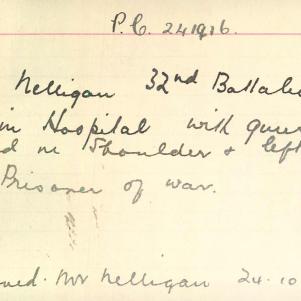 P.C. 241916.
Nelligan 32nd Battalio
in Hospital with
d in Shoulder & left
Prisoner of war.
ned. Mr Nelligan 24.10